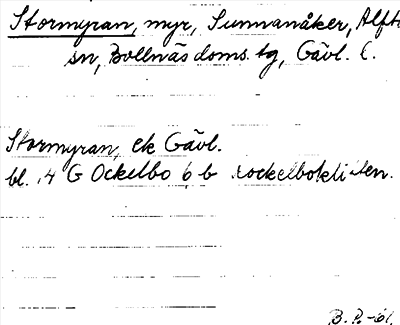 Stormyran, myr, Sunnanåker, Alfta
sn, Bollnäs doms. tg, Gävl. l.
Stormyran, ek Gävl.
bl. 14 G Ockelbo 6 b Lockelbokliften.
B. P. -61.